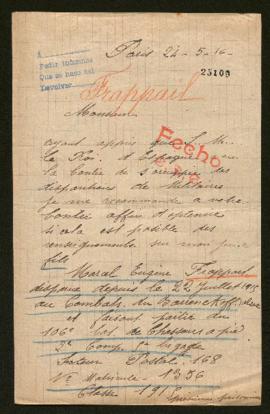 A
Pedir informes
Que se haga tal
Devolver
Paris 24-5-16-
25100
Frappait
Monsieur
ayant appris que S. M.
le Roi d'Espagne
la bonté de s'occuper des
disparitions de Militaires
je me recommande a votre
bonté afin d'obtenir
si cela est posible des
renseignements sur mon
fils
Fecho
Marcel Eugène Frappait
disparu depuis le 22 Juillet 1915
au Combats du
et faisant partie du
106e bat de Chasseurs a pied
3e Comp
Secteur Postal 168
No Matricule 1356
Classe 191